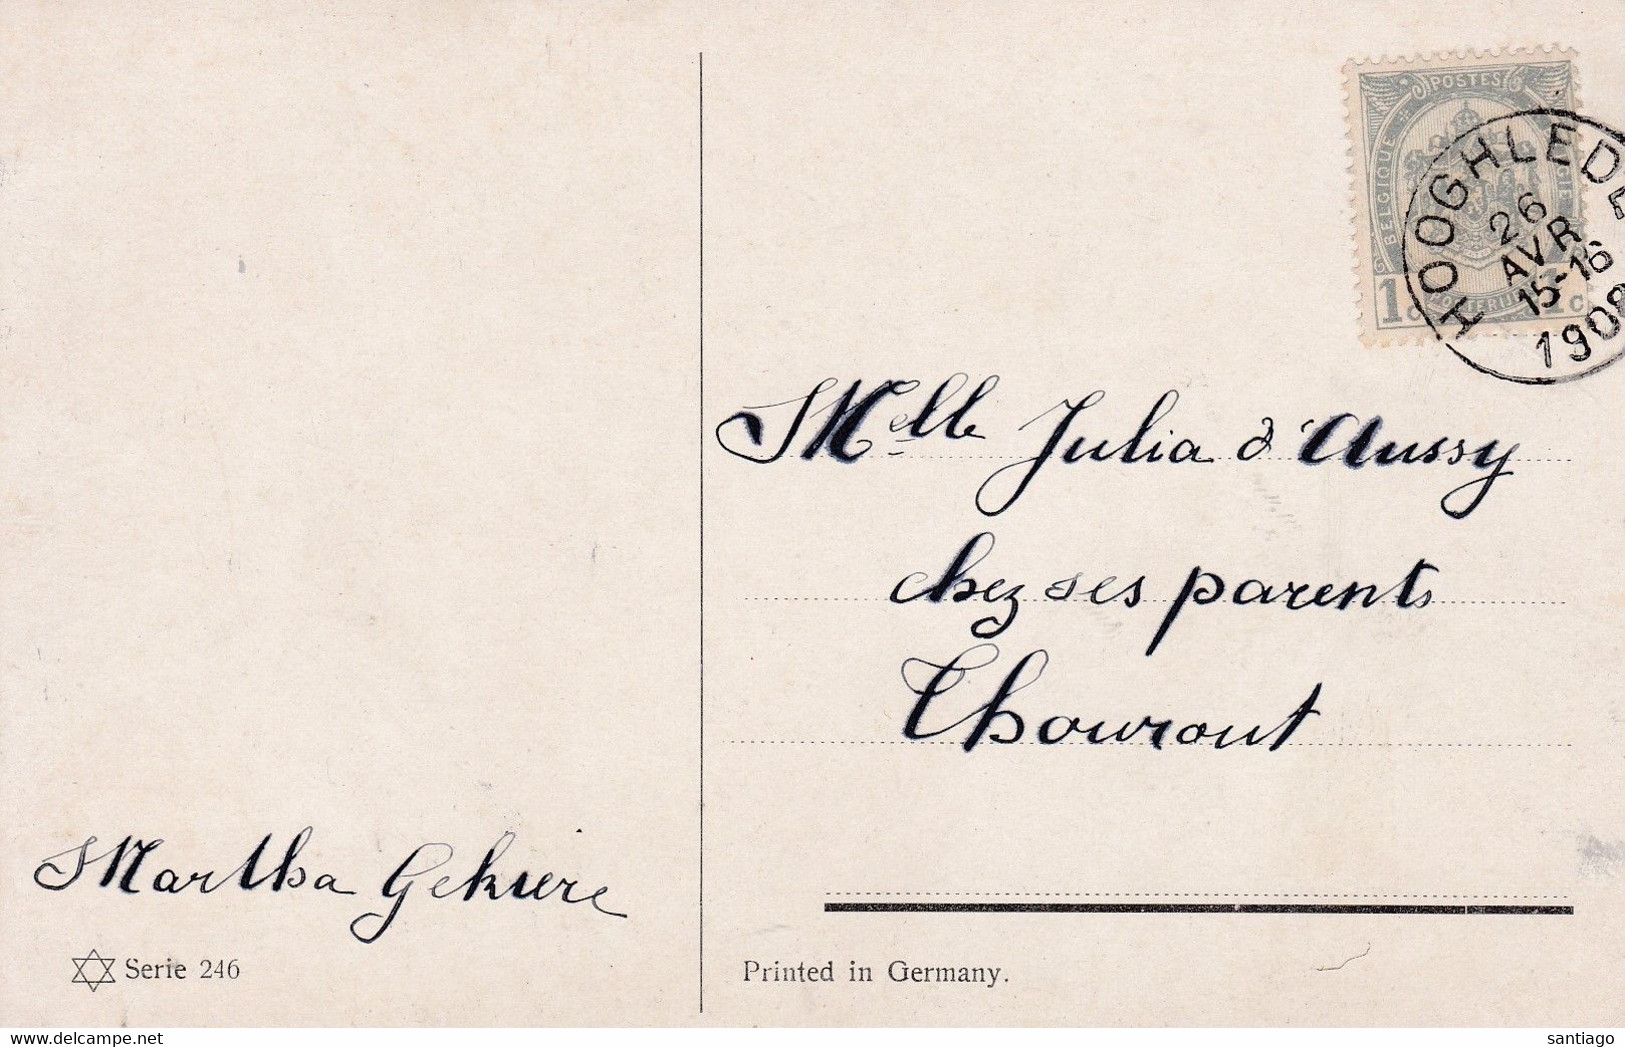 POSTES
BELGIQUE
1c
1c
HOOGHLEDE
26
AVR
15-16
1908
Melle Julia d'Aussy
chez ses parents
Thourout
Martha Gekiere
Serie 246
Printed in Germany.
delcampe.net
santiago